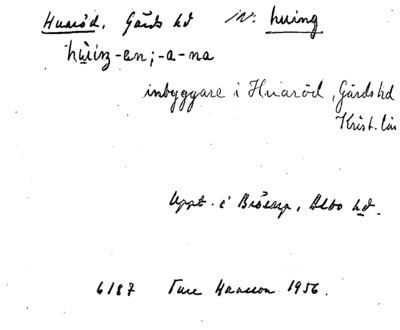 Huaröd, Gärds hd N: huing
hùiŋ-en; -a-na
inbyggare i Huaröd, Gärds hd
Krist. län
Uppt. i Brösarp, Albo hd.
6187 Ture 1956.